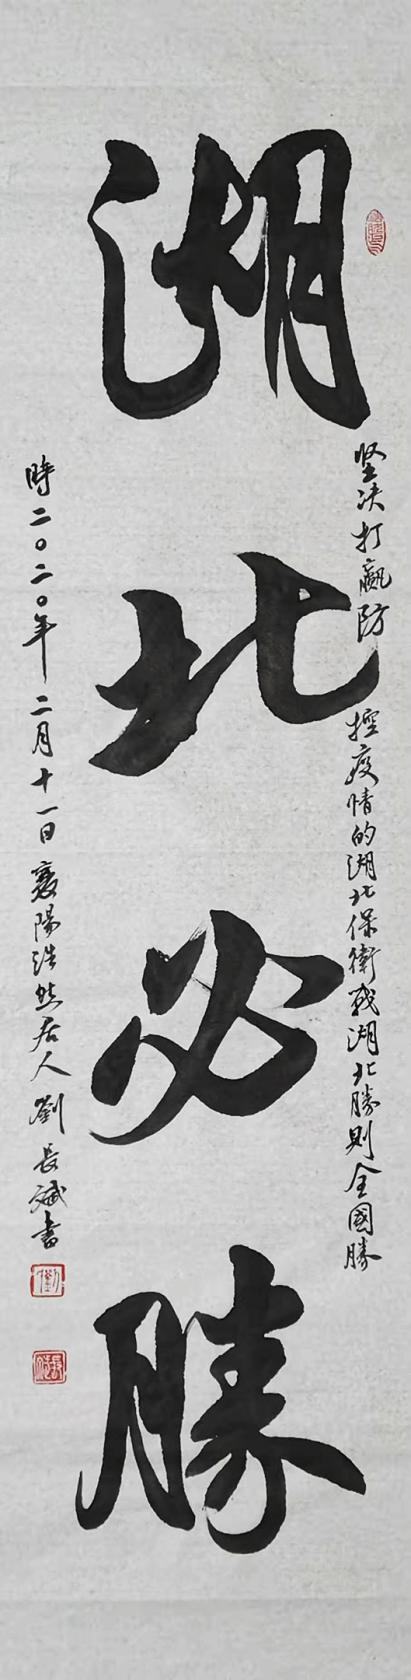 坚决打赢防控疫情的湖北保衛战湖北勝则全國勝
湖北必勝
時二〇二〇年二月十一日襄陽浩然居人劉長斌書